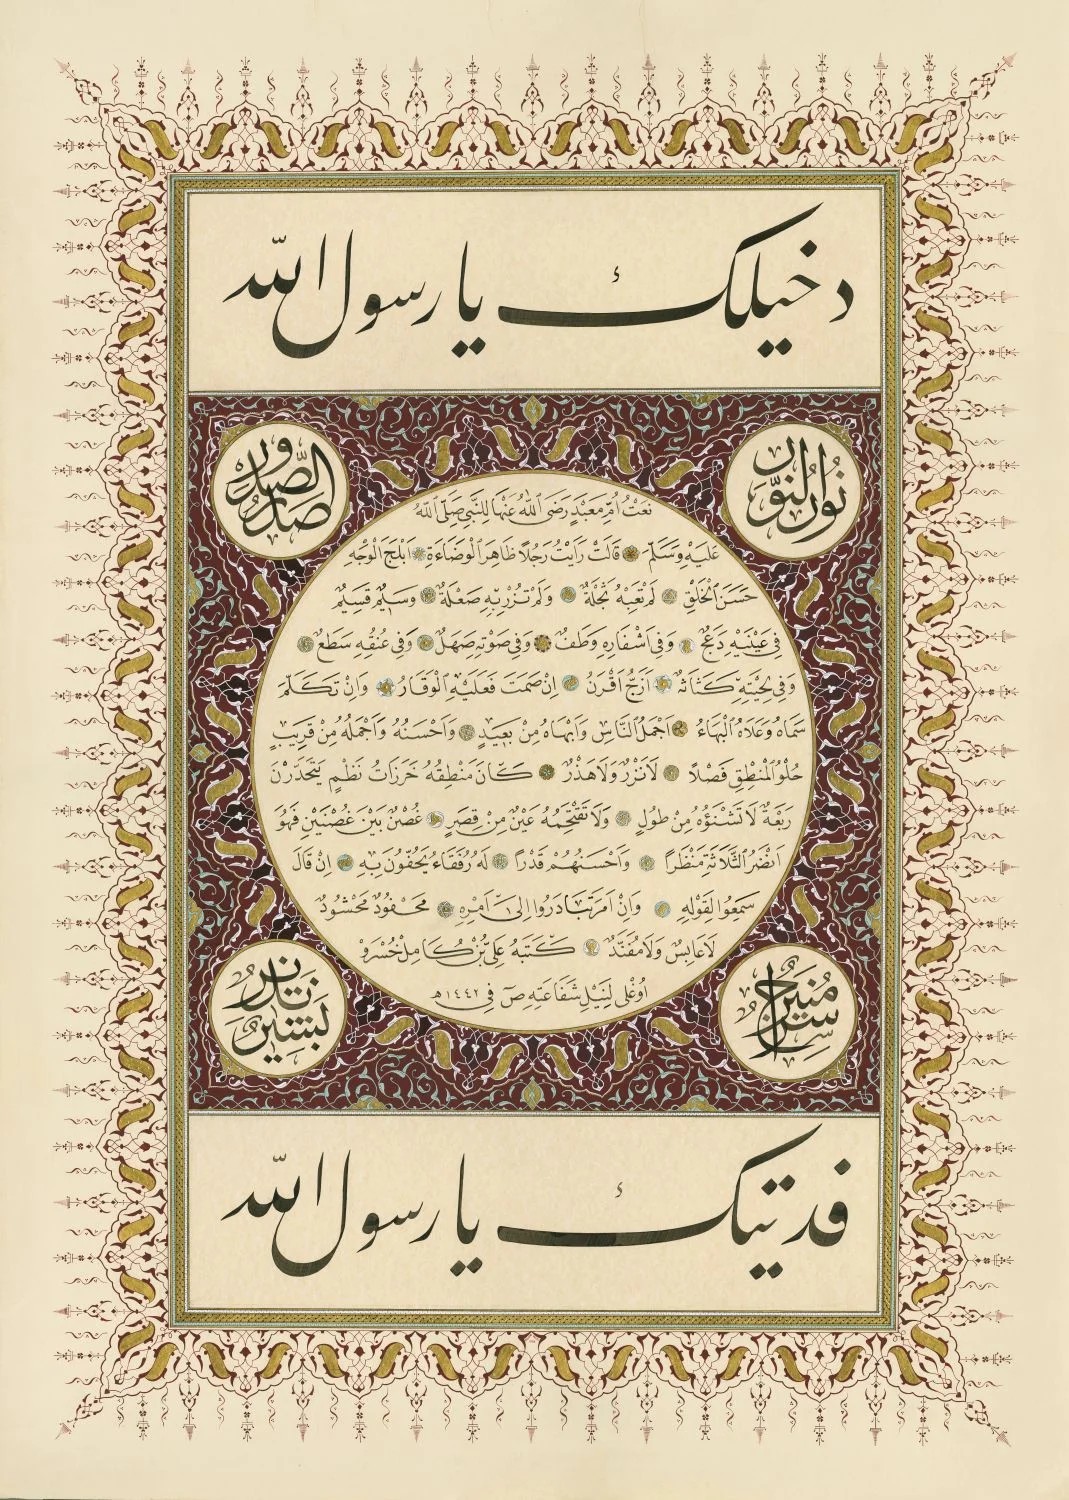 دخيلك يا رسول الله
نور النور
صدر الصدور
نَعْتُ أُمِّ مَعْبَدٍ رَضِيَ اللهُ عَنْهَا لِلنَّبِيِّ صَلَّى اللهُ
عَلَيْهِ وَسَلَّمَ قَالَتْ رَاَيْتُ رَجُلًا ظَاهِرَ الْوَضَاءَةِ اَبْلَجَ الْوَجْهِ
حَسَنَ الْخَلْقِ لَمْ تَعِبْهُ ثُجْلَةٌ وَلَمْ تُزْرِ بِهِ صَعْلَةٌ وَسِيمٌ قَسِيمٌ
فِي عَيْنَيْهِ دَعَجٌ وَفِي اَشْفَارِهِ وَطَفٌ وَفِي صَوْتِهِ صَهَلٌ وَفِي عُنُقِهِ سَطَعٌ
وَفِي لِحْيَتِهِ كَثَاثَةٌ اَزَجُّ اَقْرَنُ اِنْ صَمَتَ فَعَلَيْهِ الْوَقَارُ وَاِنْ تَكَلَّمَ
سَمَاهُ وَعَلَاهُ الْبَهَاءُ اَجْمَلُ النَّاسِ وَاَبْهَاهُ مِنْ بَعِيدٍ وَاَحْسَنُهُ وَاَجْمَلُهُ مِنْ قَرِيبٍ
حُلْوُ الْمَنْطِقِ فَصْلًا لَا نَزْرٌ وَلَا هَذْرٌ كَانَ مَنْطِقُهُ خَرَزَاتُ نَظْمٍ يَتَحَدَّرْنَ
رَبْعَةٌ لَا تَشْنَؤُهُ مِنْ طُولٍ وَلَا تَقْتَحِمُهُ عَيْنٌ مِنْ قِصَرٍ غُصْنٌ بَيْنَ غُصْنَيْنِ فَهُوَ
اَنْضَرُ الثَّلَاثَةِ مَنْظَرًا وَاَحْسَنُهُمْ قَدْرًا لَهُ رُفَقَاءُ يَحُفُّونَ بِهِ اِنْ قَالَ
سَمِعُوا لِقَوْلِهِ وَاِنْ اَمَرَ تَبَادَرُوا اِلَى اَمْرِهِ مَحْفُودٌ مَحْشُودٌ
لَا عَابِسٌ وَلَا مُفَنِّدٌ كَتَبَهُ عَلِيُّ بْنُ كَامِلْ خُسْرَوْ
اُوغْلِي لِنَيْلِ شَفَاعَتِهِ ص فِي ١٤٤٢هـ
سراج منير
بشير نذير
فديتك يا رسول الله